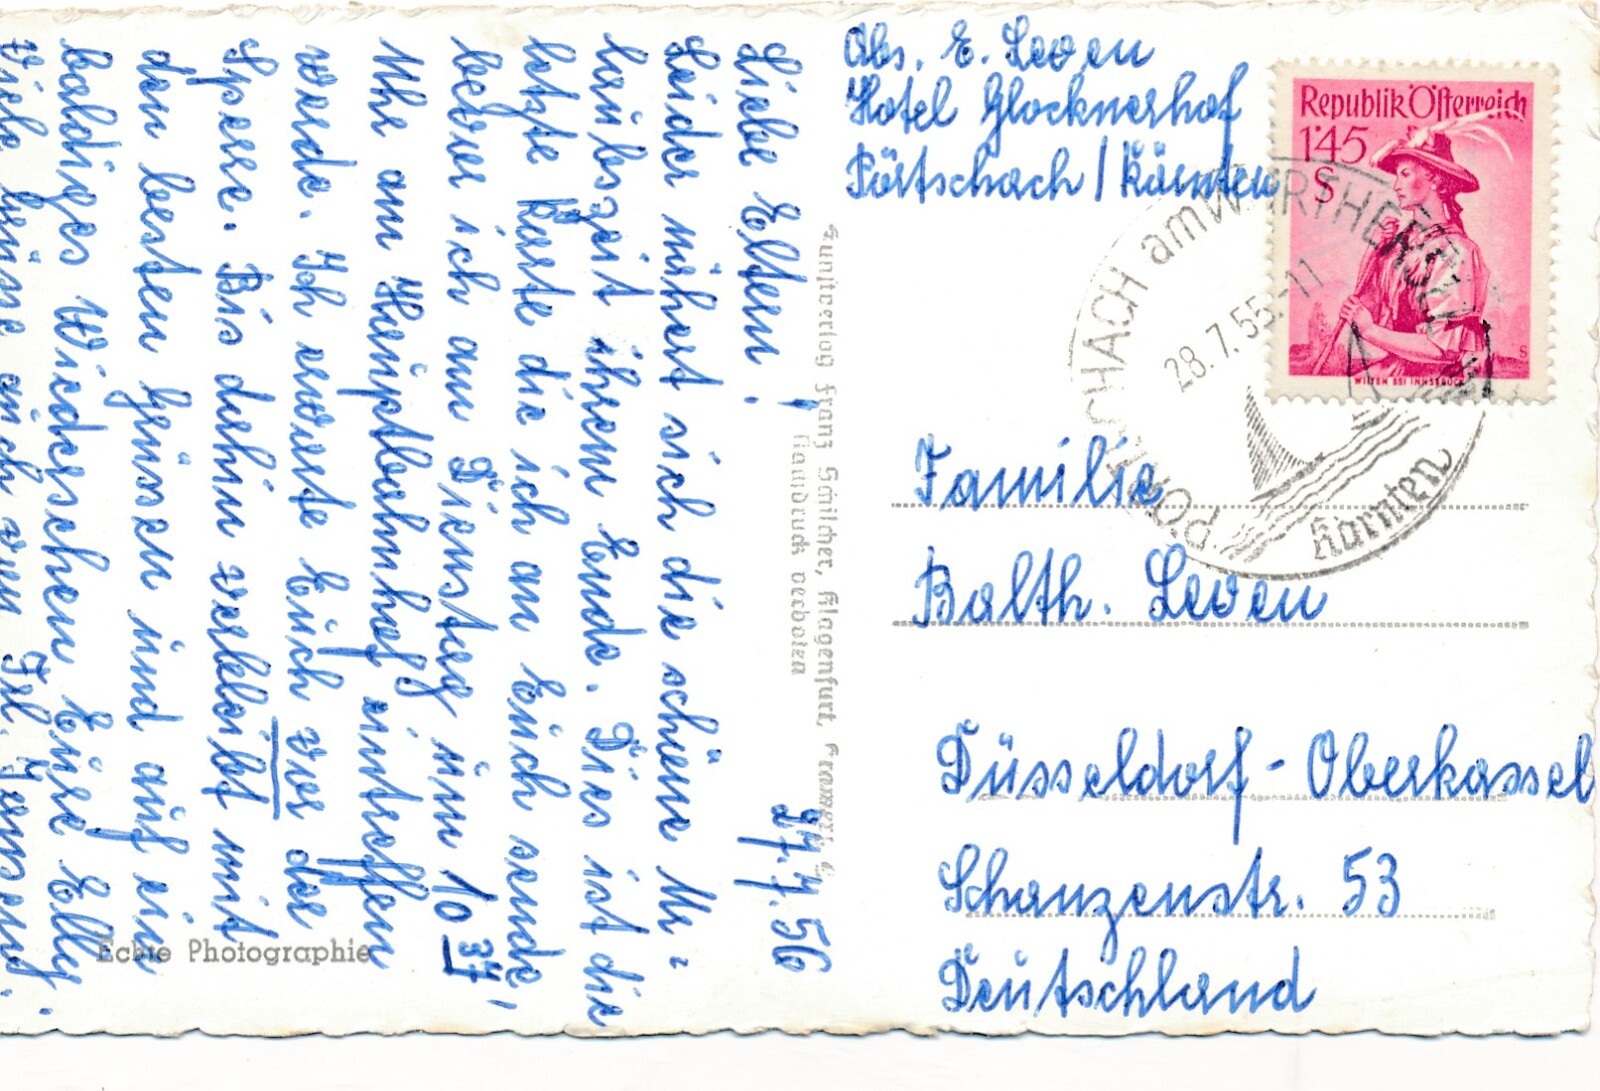 27.7.56
Liebe Eltern!
Leider nähert sich die schöne Ur=
laubszeit ihrem Ende. Dies ist die
letzte Karte die ich an Euch sende,
bevor ich am Dienstag um 10 37
Uhr am Hauptbahnhof eintreffen
werde. Ich erwarte Euch vor der
Sperre. Bis dahin verbleibt mit
den besten Grüssen und auf ein
baldiges Wiedersehen Eure Elly.
Viele Grüsse auch von Frl.
Echte Photographie
Kunstverlag Franz Schilcher, Klagenfurt,
Nachdruck verboten
Abs. E. Leven
Hotel Glocknerhof
Pörtschach / Kärnten
Republik Österreich
1'45
S
WILTEN BEI INNSBRUCK
PÖRTSCHACH am WÖRTHERSEE
28.7.55.-11
Kärnten
Familie
Balth. Leven
Düsseldorf - Oberkassel
Schanzenstr. 53
Deutschland